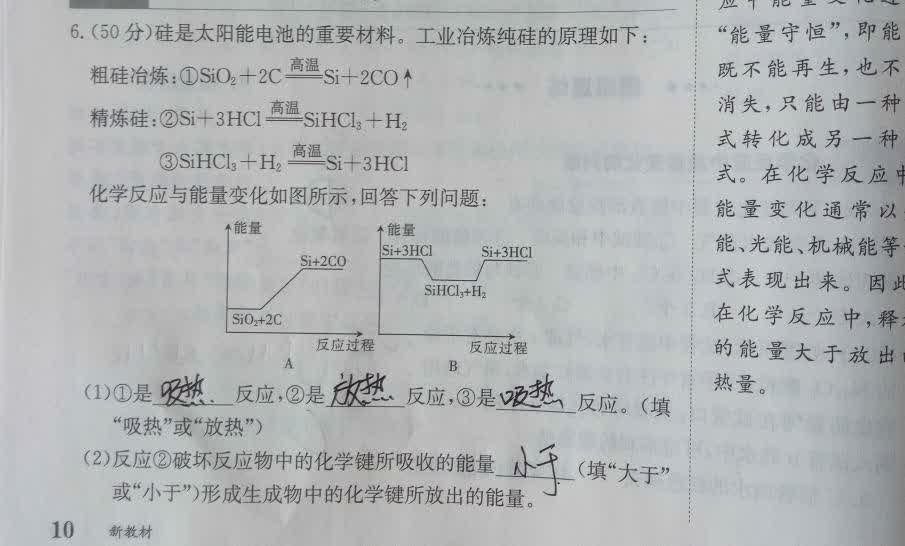 6.(50分)硅是太阳能电池的重要材料。工业冶炼纯硅的原理如下:
粗硅冶炼:①SiO₂+2C 高温 Si+2CO↑
精炼硅:②Si+3HCl 高温 SiHCl₃+H₂
③SiHCl₃+H₂ 高温 Si+3HCl
化学反应与能量变化如图所示,回答下列问题:
能量
Si+2CO
SiO₂+2C
反应过程
A
能量
Si+3HCl
Si+3HCl
SiHCl₃+H₂
反应过程
B
(1)①是 吸热 反应,②是 放热 反应,③是 吸热 反应。(填
“吸热”或“放热”)
(2)反应②破坏反应物中的化学键所吸收的能量 小于 (填“大于”
或“小于”)形成生成物中的化学键所放出的能量。
10 新教材
“能量守恒”,即能
既不能再生,也不
消失,只能由一种
式转化成另一种
式。在化学反应中
能量变化通常以
能、光能、机械能等
式表现出来。因此
在化学反应中,释
的能量大于放出
热量。